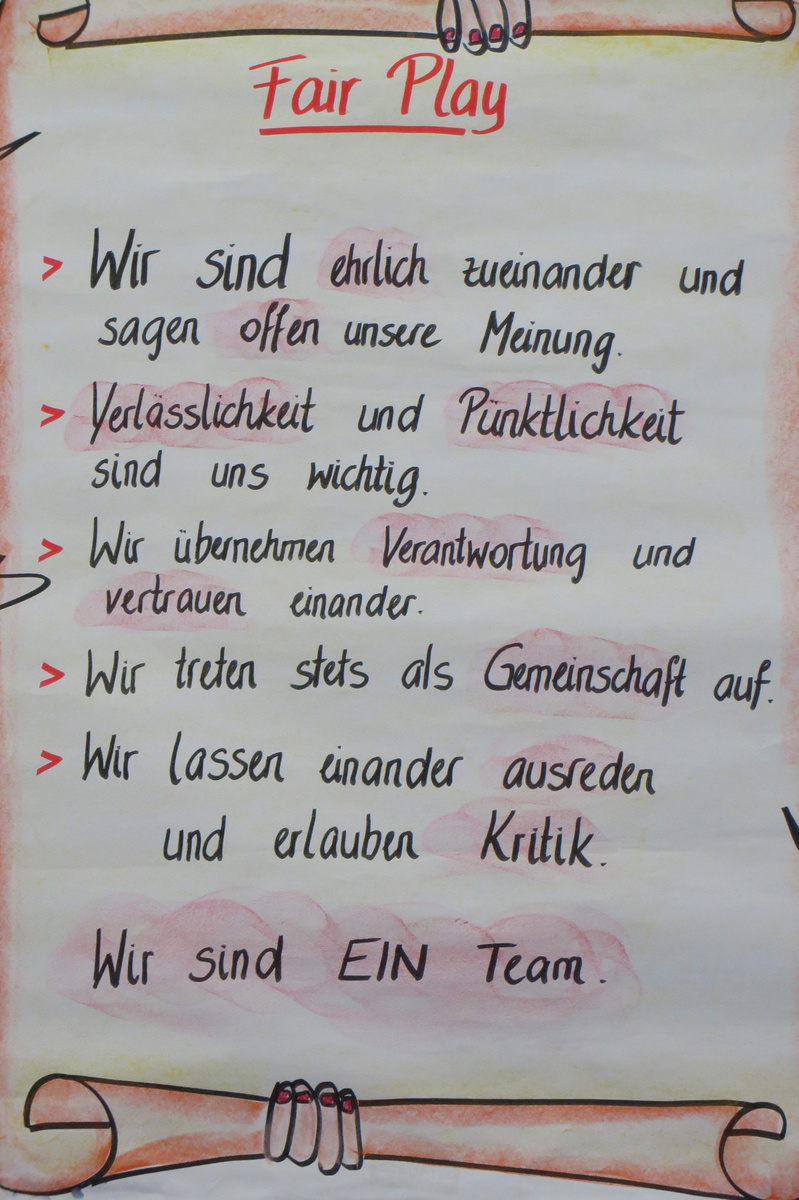 Fair Play
> Wir sind ehrlich zueinander und
sagen offen unsere Meinung.
> Verlässlichkeit und Pünktlichkeit
sind uns wichtig.
> Wir übernehmen Verantwortung und
vertrauen einander.
> Wir treten stets als Gemeinschaft auf.
> Wir lassen einander ausreden
und erlauben Kritik.
Wir sind EIN Team.